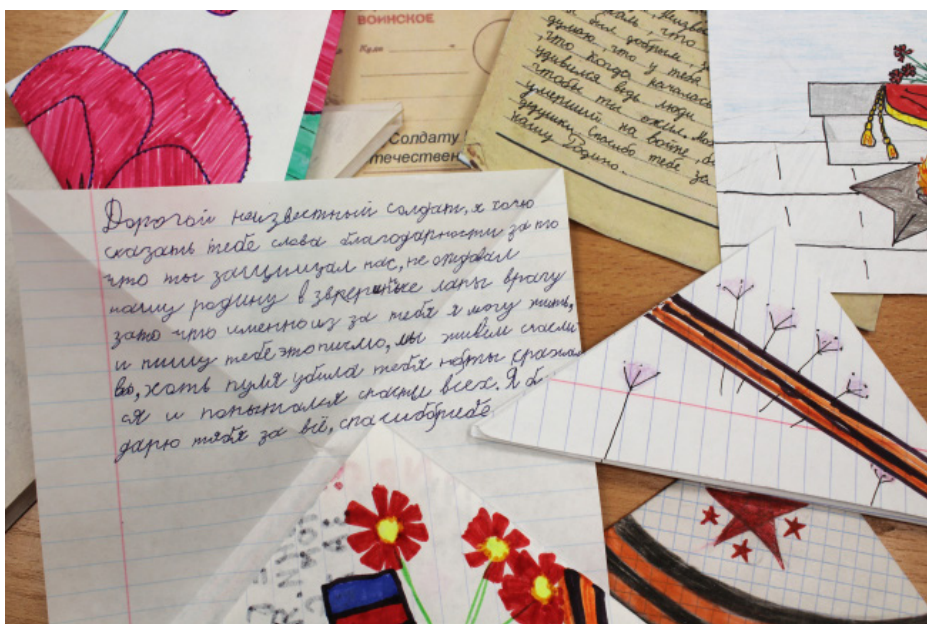 ВОИНСКОЕ
Куда
Солдату
течествен
что
был добрым
думаю, что у тебя
что когда началась
удивился ведь люди
чтобы ты
умерший на войне,
дедушки. Спасибо тебе за
нашу Родину.
Дорогой неизвестный солдат, я хочу
сказать тебе слова благодарности за то
что ты защищал нас, не отдавал
нашу родину в звериные лапы врагу
зато что именно из за тебя я могу жить,
и пишу тебе это письмо, мы живём счасли
во, хоть пуля убила тебя но ты сражал
ся и попытался спасти всех. Я б
дарю тябя за всё, спасибо тебе